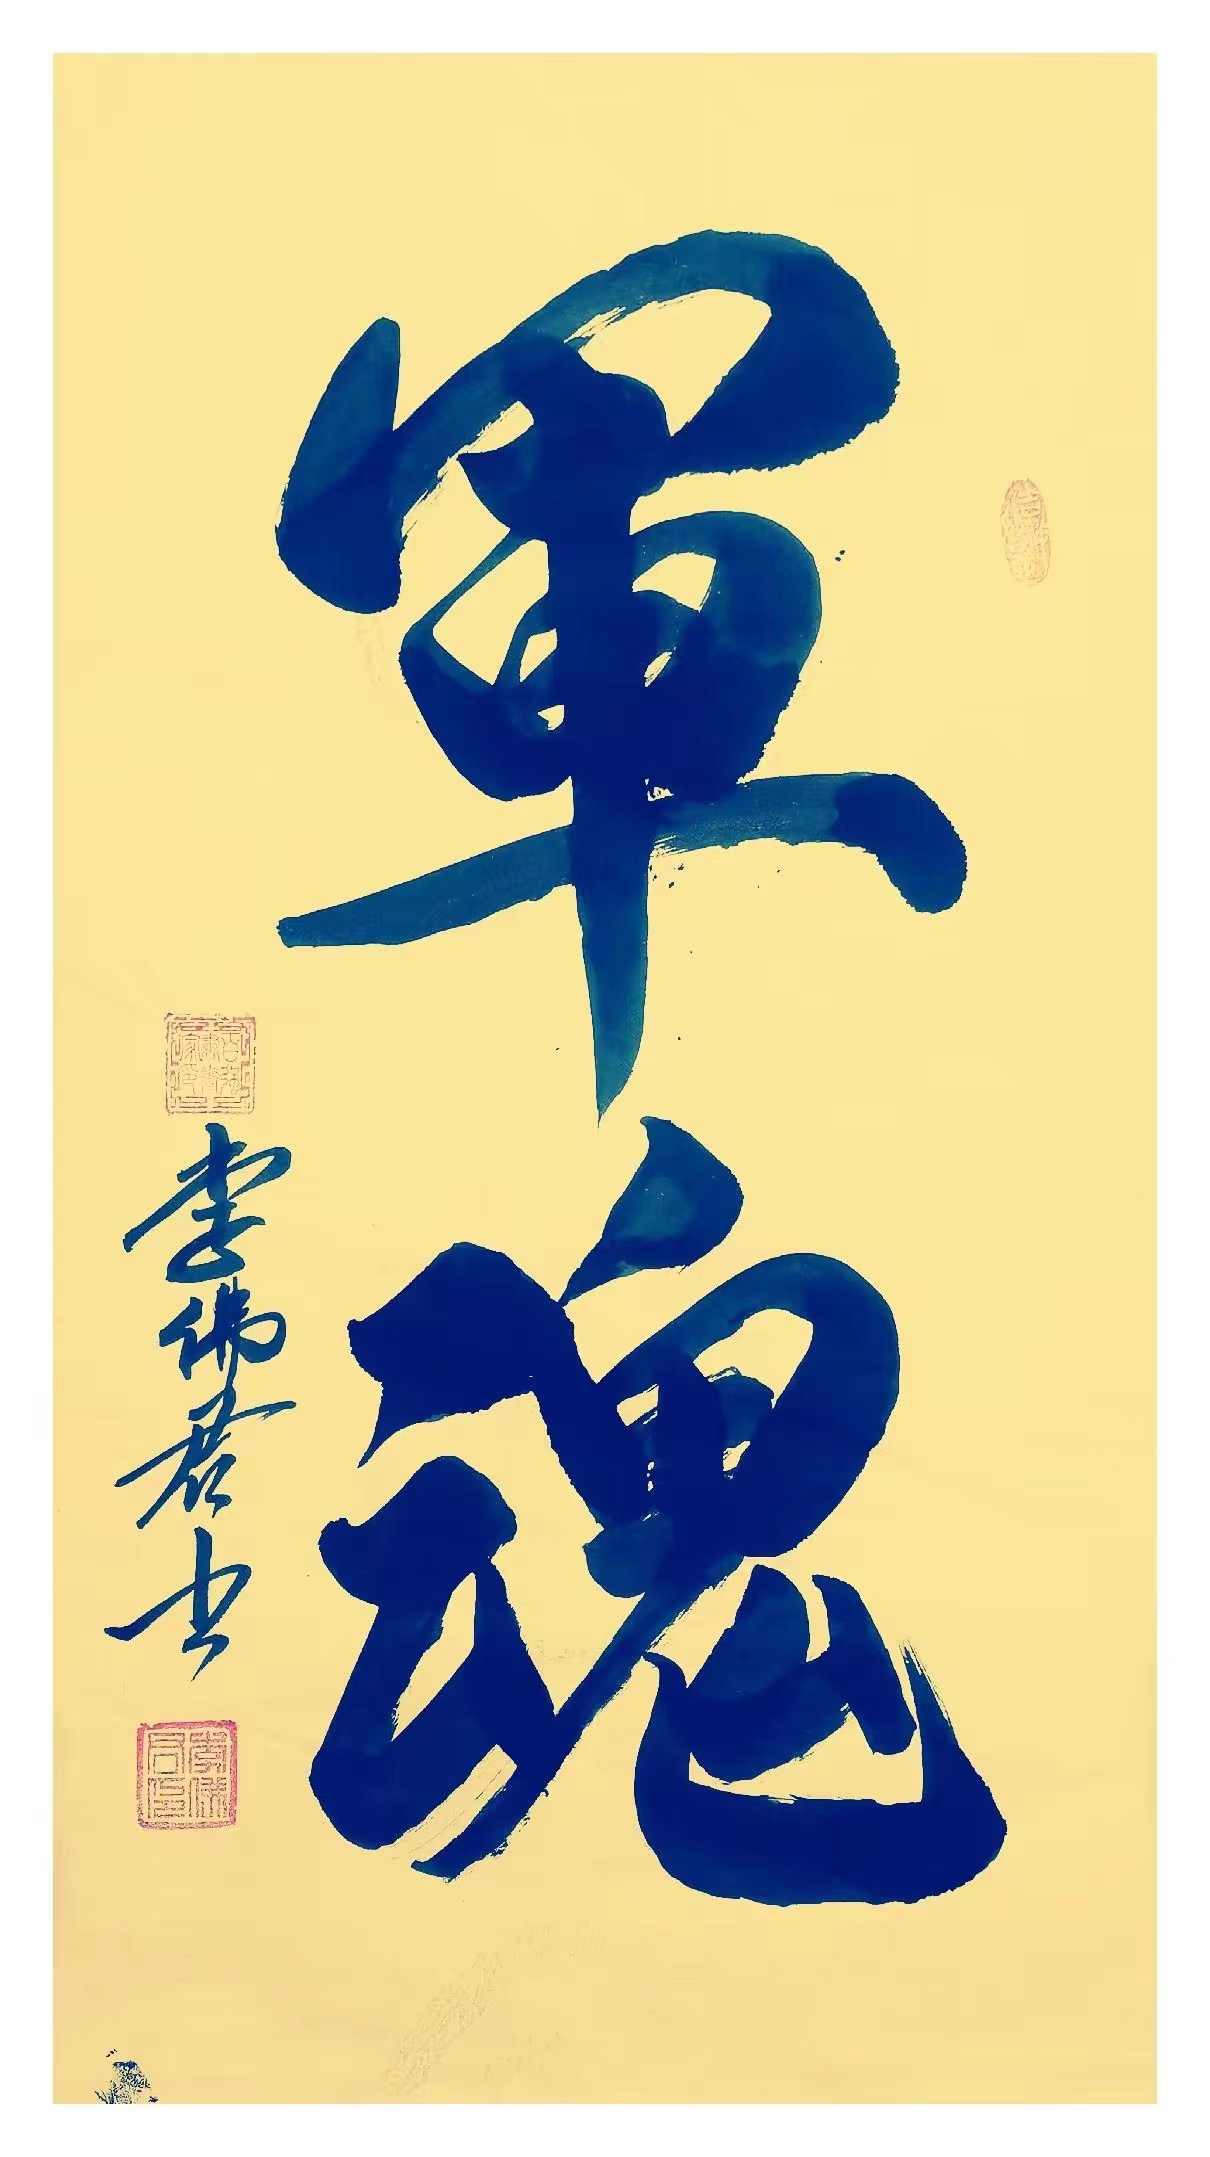 軍魂
李佛君书